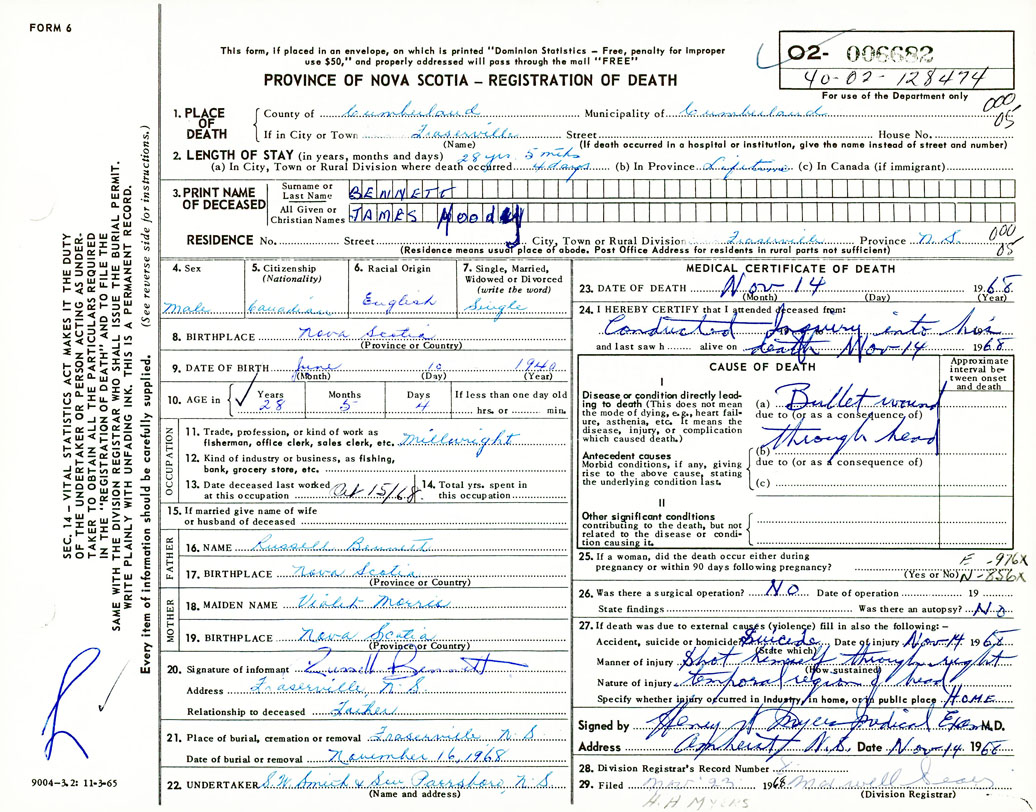 FORM 6
This form, if placed in an envelope, on which is printed "Dominion Statistics – Free, penalty for improper
use $50," and properly addressed will pass through the mail "FREE"
PROVINCE OF NOVA SCOTIA – REGISTRATION OF DEATH
O2- 006682
40-02-128474
For use of the Department only
000
05
1. PLACE OF DEATH
County of Cumberland Municipality of Cumberland
If in City or Town Fraserville Street House No.
(Name) (If death occurred in a hospital or institution, give the name instead of street and number)
2. LENGTH OF STAY (in years, months and days) 28 yrs. 5 mths
(a) In City, Town or Rural Division where death occurred 4 days (b) In Province Lifetime (c) In Canada (if immigrant)
3. PRINT NAME OF DECEASED
Surname or Last Name BENNETT
All Given or Christian Names JAMES Moodey
RESIDENCE No. Street City, Town or Rural Division Fraserville Province N.S.
(Residence means usual place of abode. Post Office Address for residents in rural parts not sufficient)
000
05
4. Sex
Male
5. Citizenship
(Nationality)
Canadian
6. Racial Origin
English
7. Single, Married,
Widowed or Divorced
(write the word)
Single
8. BIRTHPLACE Nova Scotia
(Province or Country)
9. DATE OF BIRTH June 10 1940
(Month) (Day) (Year)
10. AGE in
Years Months Days If less than one day old
28 5 4 hrs. or min.
OCCUPATION
11. Trade, profession, or kind of work as
fisherman, office clerk, sales clerk, etc. Millwright
12. Kind of industry or business, as fishing,
bank, grocery store, etc.
13. Date deceased last worked
at this occupation Oct 15/68
14. Total yrs. spent in
this occupation
15. If married give name of wife
or husband of deceased
FATHER
16. NAME Russell Bennett
17. BIRTHPLACE Nova Scotia
(Province or Country)
MOTHER
18. MAIDEN NAME Violet Morris
19. BIRTHPLACE Nova Scotia
(Province or Country)
20. Signature of informant Russell Bennett
Address Fraserville, N.S
Relationship to deceased Father
21. Place of burial, cremation or removal Fraserville N.S
Date of burial or removal November 16, 1968
22. UNDERTAKER S.W. Smith & Son Parrsboro, N.S
(Name and address)
MEDICAL CERTIFICATE OF DEATH
23. DATE OF DEATH Nov 14 1968
(Month) (Day) (Year)
24. I HEREBY CERTIFY that I attended deceased from:
Conducted Inquiry into his
and last saw h alive on death Nov-14 1968
CAUSE OF DEATH
Approximate
interval be-
tween onset
and death
I
Disease or condition directly lead-
ing to death (This does not mean
the mode of dying, e.g., heart fail-
ure, asthenia, etc. It means the
disease, injury, or complication
which caused death.)
(a) Bullet wound
due to (or as a consequence of)
through head
Antecedent causes
Morbid conditions, if any, giving
rise to the above cause, stating
the underlying condition last.
(b)
due to (or as a consequence of)
(c)
II
Other significant conditions
contributing to the death, but not
related to the disease or condi-
tion causing it.
25. If a woman, did the death occur either during
pregnancy or within 90 days following pregnancy?
(Yes or No)
E -976X
N-856X
26. Was there a surgical operation? NO Date of operation 19
State findings Was there an autopsy? No
27. If death was due to external causes (violence) fill in also the following:–
Accident, suicide or homicide Suicide Date of injury Nov-14 1968
(State which)
Manner of injury Shot himself through right
(How sustained)
Nature of injury temporal region of head
Specify whether injury occurred in Industry, in home, or in public place HOME
Signed by Henry H Myers Medical Exam M.D.
Address Amherst N.S. Date Nov-14 1968
28. Division Registrar's Record Number
29. Filed 1968
(Division Registrar)
H.H MYERS
SEC. 14 – VITAL STATISTICS ACT MAKES IT THE DUTY
OF THE UNDERTAKER OR PERSON ACTING AS UNDER-
TAKER TO OBTAIN ALL THE PARTICULARS REQUIRED
IN THE "REGISTRATION OF DEATH" AND TO FILE THE
SAME WITH THE DIVISION REGISTRAR WHO SHALL ISSUE THE BURIAL PERMIT.
WRITE PLAINLY WITH UNFADING INK. THIS IS A PERMANENT RECORD.
Every item of information should be carefully supplied. (See reverse side for instructions.)
9004–3.2: 11-3-65